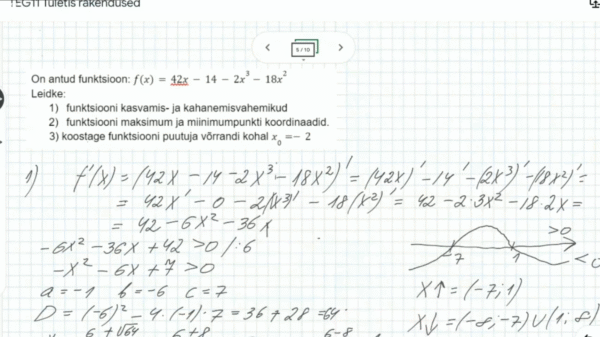 TEGTT Tuletis rakendused
5 / 10
On antud funktsioon: f(x) = 42x − 14 − 2x³ − 18x²
Leidke:
1) funktsiooni kasvamis- ja kahanemisvahemikud
2) funktsiooni maksimum ja miinimumpunkti koordinaadid.
3) koostage funktsiooni puutuja võrrandi kohal x₀ =− 2
1) f'(x) = (42x − 14 − 2x³ − 18x²)' = (42x)' − 14' − (2x³)' − (18x²)' =
= 42x' − 0 − 2(x³)' − 18(x²)' = 42 − 2·3x² − 18·2x =
= 42 − 6x² − 36x
−6x² − 36x + 42 > 0 /:6
−x² − 6x + 7 > 0
a = −1 b = −6 c = 7
D = (−6)² − 4·(−1)·7 = 36 + 28 = 64
>0
−7 1
<0
X↑ = (−7; 1)
X↓ = (−∞; −7) U (1; ∞)